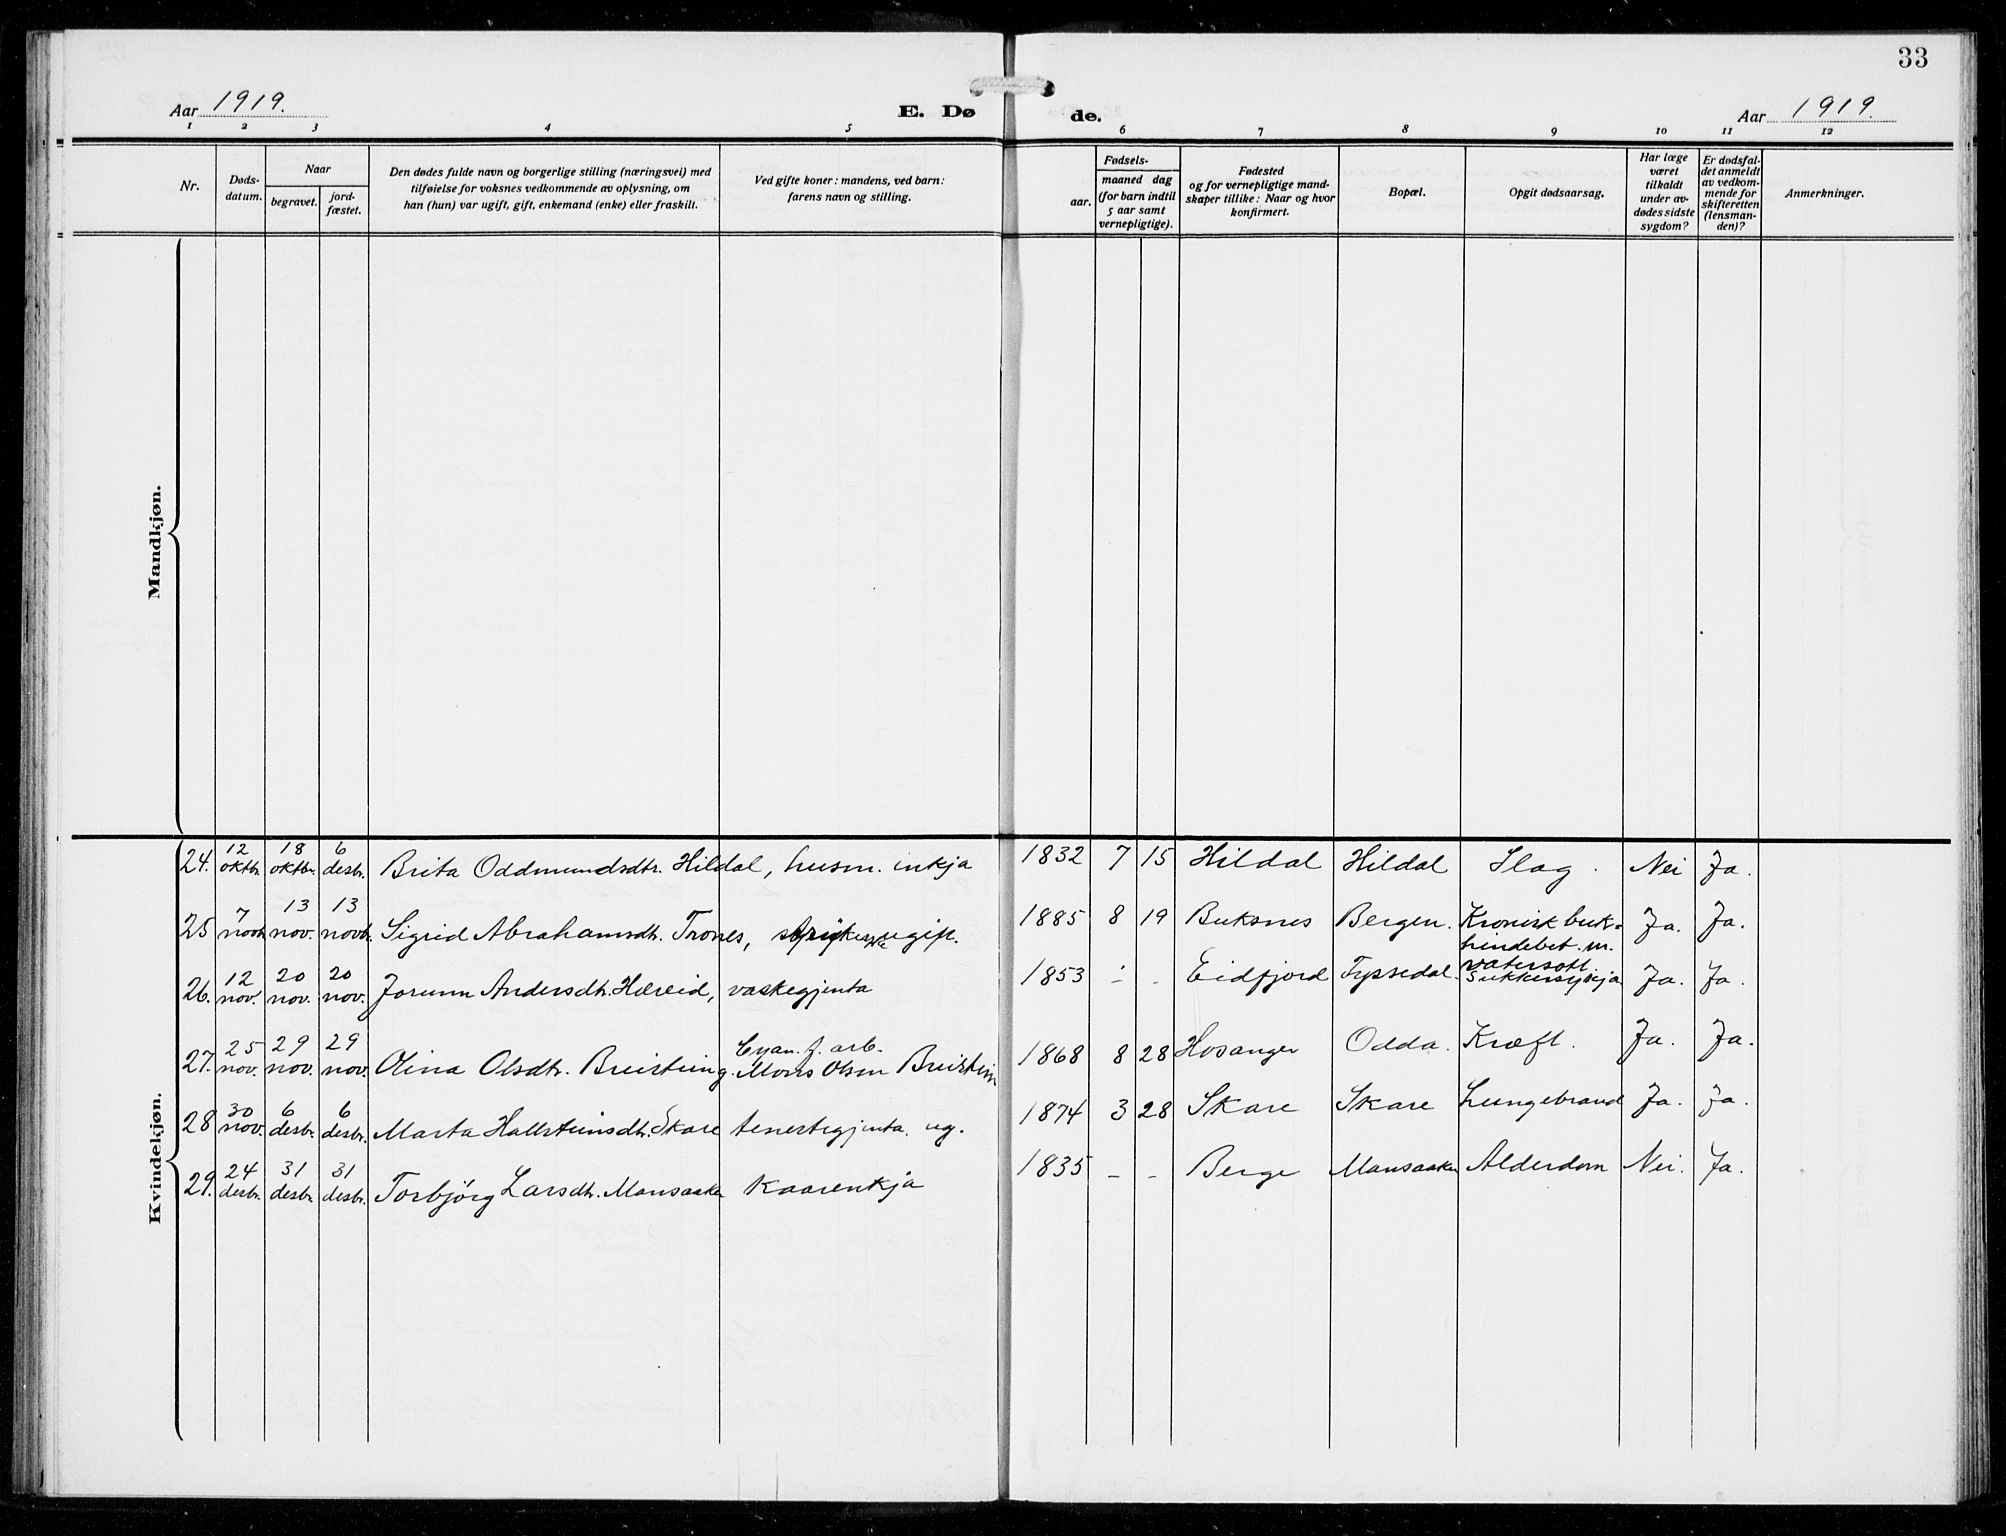 33
Aar 1919.
E. Dø
de.
Aar 1919.
1 2 3 4 5 6 7 8 9 10 11 12
Nr.
Døds-
datum.
Naar
begravet.
jord-
fæstet.
Den dødes fulde navn og borgerlige stilling (næringsvei) med
tilføielse for voksnes vedkommende av oplysning, om
han (hun) var ugift, gift, enkemand (enke) eller fraskilt.
Ved gifte koner: mandens, ved barn:
farens navn og stilling.
Fødsels-
aar.
maaned dag
(for barn indtil
5 aar samt
vernepligtige).
Fødested
og for vernepligtige mand-
skaper tillike: Naar og hvor
konfirmert.
Bopæl.
Opgit dødsaarsag.
Har læge
været
tilkaldt
under av-
dødes sidste
sygdom?
Er dødsfal-
det anmeldt
av vedkom-
mende for
skifteretten
(lensman-
den)?
Anmerkninger.
Mandkjøn.
Kvindekjøn.
24. 12 oktbr. 18 oktbr. 6 desbr. Brita Oddmundsdtr. Hildal, husm. inkja 1832 7 15 Hildal Hildal Slag. Nei Ja.
25 7 13 nov. 13 Sigrid Abrahamsdtr. Trones, ugift. 1885 8 19 Buksnes Bergen. Kronisk buk-
hindebet. m.
vatersott
Ja. Ja.
26. 12 nov. 20 nov. 20 nov. Jorunn Andersdtr. Hæreid, vaskegjenta 1853 - - Eidfjord Tyssedal. Sukkersykja Ja. Ja.
27. 25 nov. 29 nov. 29 nov. Olina Olsdtr. Cyan. f. arb.
Mons Olsen 1868 8 28 Hosanger Odda. Kræft. Ja. Ja.
28 30 nov. 6 desbr. 6 desbr. Marta Hallsteinsdtr. Skare tenestegjenta. ug. 1874 3 28 Skare Skare Lungebrand Ja. Ja.
29. 24 desbr. 31 desbr. 31 desbr. Torbjørg Larsdtr. Mansaaker Kaarenkja 1835 - - Berge Mansaaker Alderdom Nei. Ja.